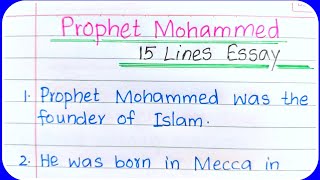 Prophet Mohammed
15 Lines Essay
1. Prophet Mohammed was the
founder of Islam.
2. He was born in Mecca in